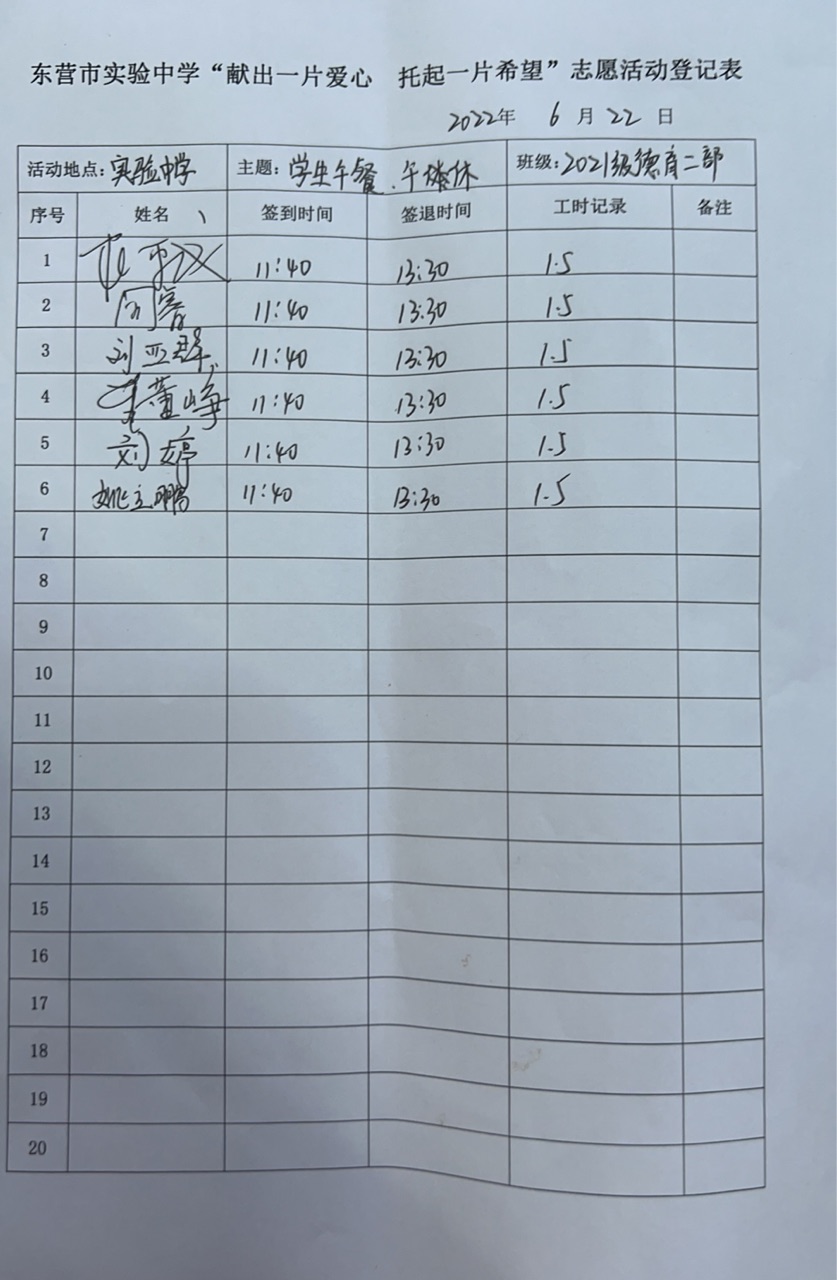 东营市实验中学“献出一片爱心 托起一片希望”志愿活动登记表
2022年 6 月 22 日
活动地点：实验中学 主题：学生午餐、午休 班级：2021级德育二部
序号 姓名 签到时间 签退时间 工时记录 备注
1 11:40 13:30 1.5
2 闫睿 11:40 13:30 1.5
3 刘亚群 11:40 13:30 1.5
4 董峥 11:40 13:30 1.5
5 刘婷 11:40 13:30 1.5
6 姚立鹏 11:40 13:30 1.5
7
8
9
10
11
12
13
14
15
16
17
18
19
20